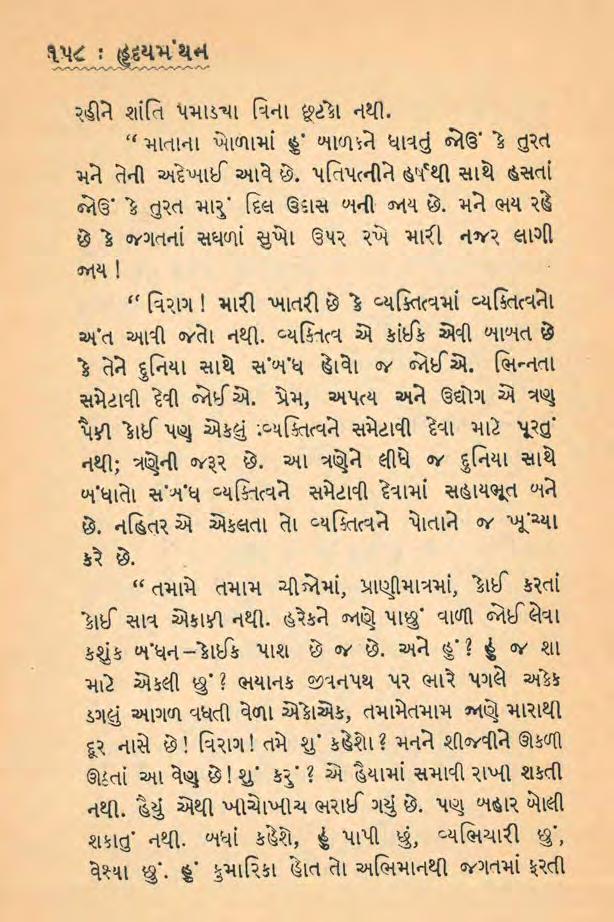 ૧૫૮ : હૃદયમંથન
રહીને શાંતિ પમાડયા વિના છૂટકો નથી.
“ માતાના ખોળામાં હું બાળકને ધાવતું જોઉં કે તુરત
મને તેની અદેખાઈ આવે છે. પતિપત્નીને હર્ષથી સાથે હસતાં
જોઉં કે તુરત મારું દિલ ઉદાસ બની જાય છે. મને ભય રહે
છે કે જગતનાં સઘળાં સુખો ઉપર રખે મારી નજર લાગી
જાય !
“ વિરાગ ! મારી ખાતરી છે કે વ્યક્તિત્વમાં વ્યક્તિત્વનો
અંત આવી જતો નથી. વ્યક્તિત્વ એ કાંઈક એવી બાબત છે
કે તેને દુનિયા સાથે સંબંધ હોવો જ જોઈએ. ભિન્નતા
સમેટાવી દેવી જોઈએ. પ્રેમ, અપત્ય અને ઉદ્યોગ એ ત્રણ
પૈકી કોઈ પણ એકલું વ્યક્તિત્વને સમેટાવી દેવા માટે પૂરતું
નથી; ત્રણેની જરૂર છે. આ ત્રણેને લીધે જ દુનિયા સાથે
બંધાતો સંબંધ વ્યક્તિત્વને સમેટાવી દેવામાં સહાયભૂત બને
છે. નહિતર એ એકલતા તો વ્યક્તિત્વને પોતાને જ ખૂંચ્યા
કરે છે.
“ તમામે તમામ ચીજોમાં, પ્રાણીમાત્રમાં, કોઈ કરતાં
કોઈ સાવ એકાકી નથી. હરેકને જાણે પાછું વાળી જોઈ લેવા
કશુંક બંધન–કોઈક પાશ છે જ છે. અને હું ? હું જ શા
માટે એકલી છું ? ભયાનક જીવનપથ પર ભારે પગલે અકેક
ડગલું આગળ વધતી વેળા એકોએક, તમામેતમામ જાણે મારાથી
દૂર નાસે છે ! વિરાગ ! તમે શું કહેશો ? મનને શીજવીને ઊકળી
ઊઠતાં આ વેણ છે ! શું કરું ? એ હૈયામાં સમાવી રાખી શકતી
નથી. હૈયું એથી ખીચોખીચ ભરાઈ ગયું છે. પણ બહાર બોલી
શકાતું નથી. બધાં કહેશે, હું પાપી છું, વ્યભિચારી છું,
વેશ્યા છું. હું કુમારિકા હોત તો અભિમાનથી જગતમાં ફરતી